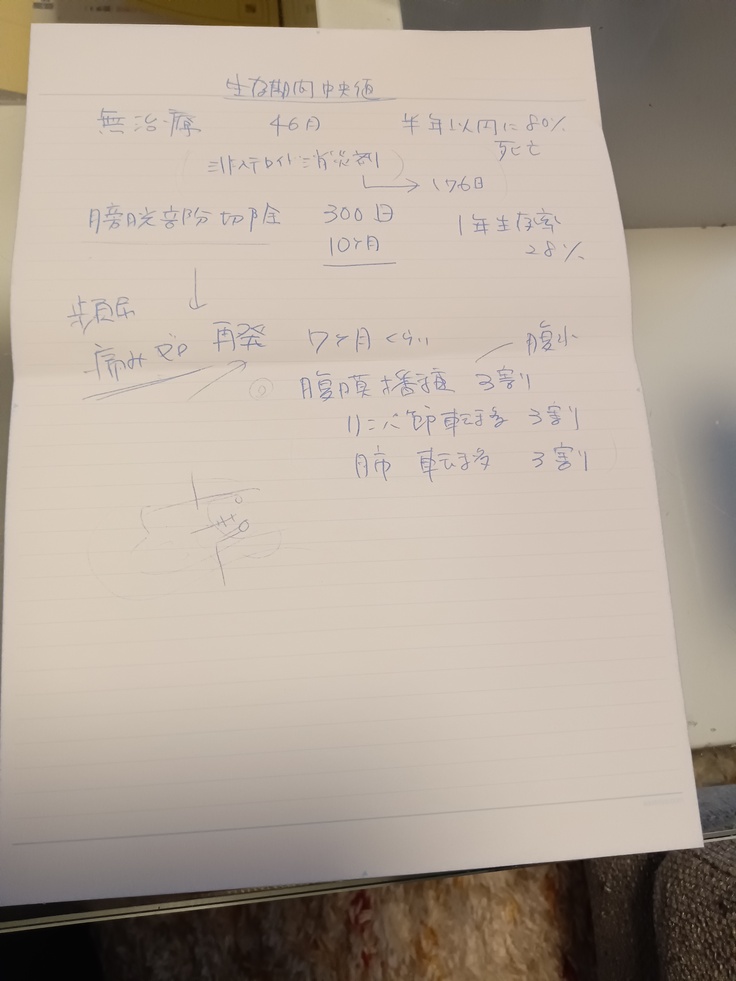 生存期間中央値
無治療 46日 半年以内に80%
死亡
(非ステロイド消炎剤)
→176日
膀胱部分切除 300日 1年生存率
10ヶ月 28%
↓
頻尿
痛み 再発 7ヶ月くらい 腹水
◎ 腹膜播種 3割
リンパ節転移 3割
肺 転移 3割